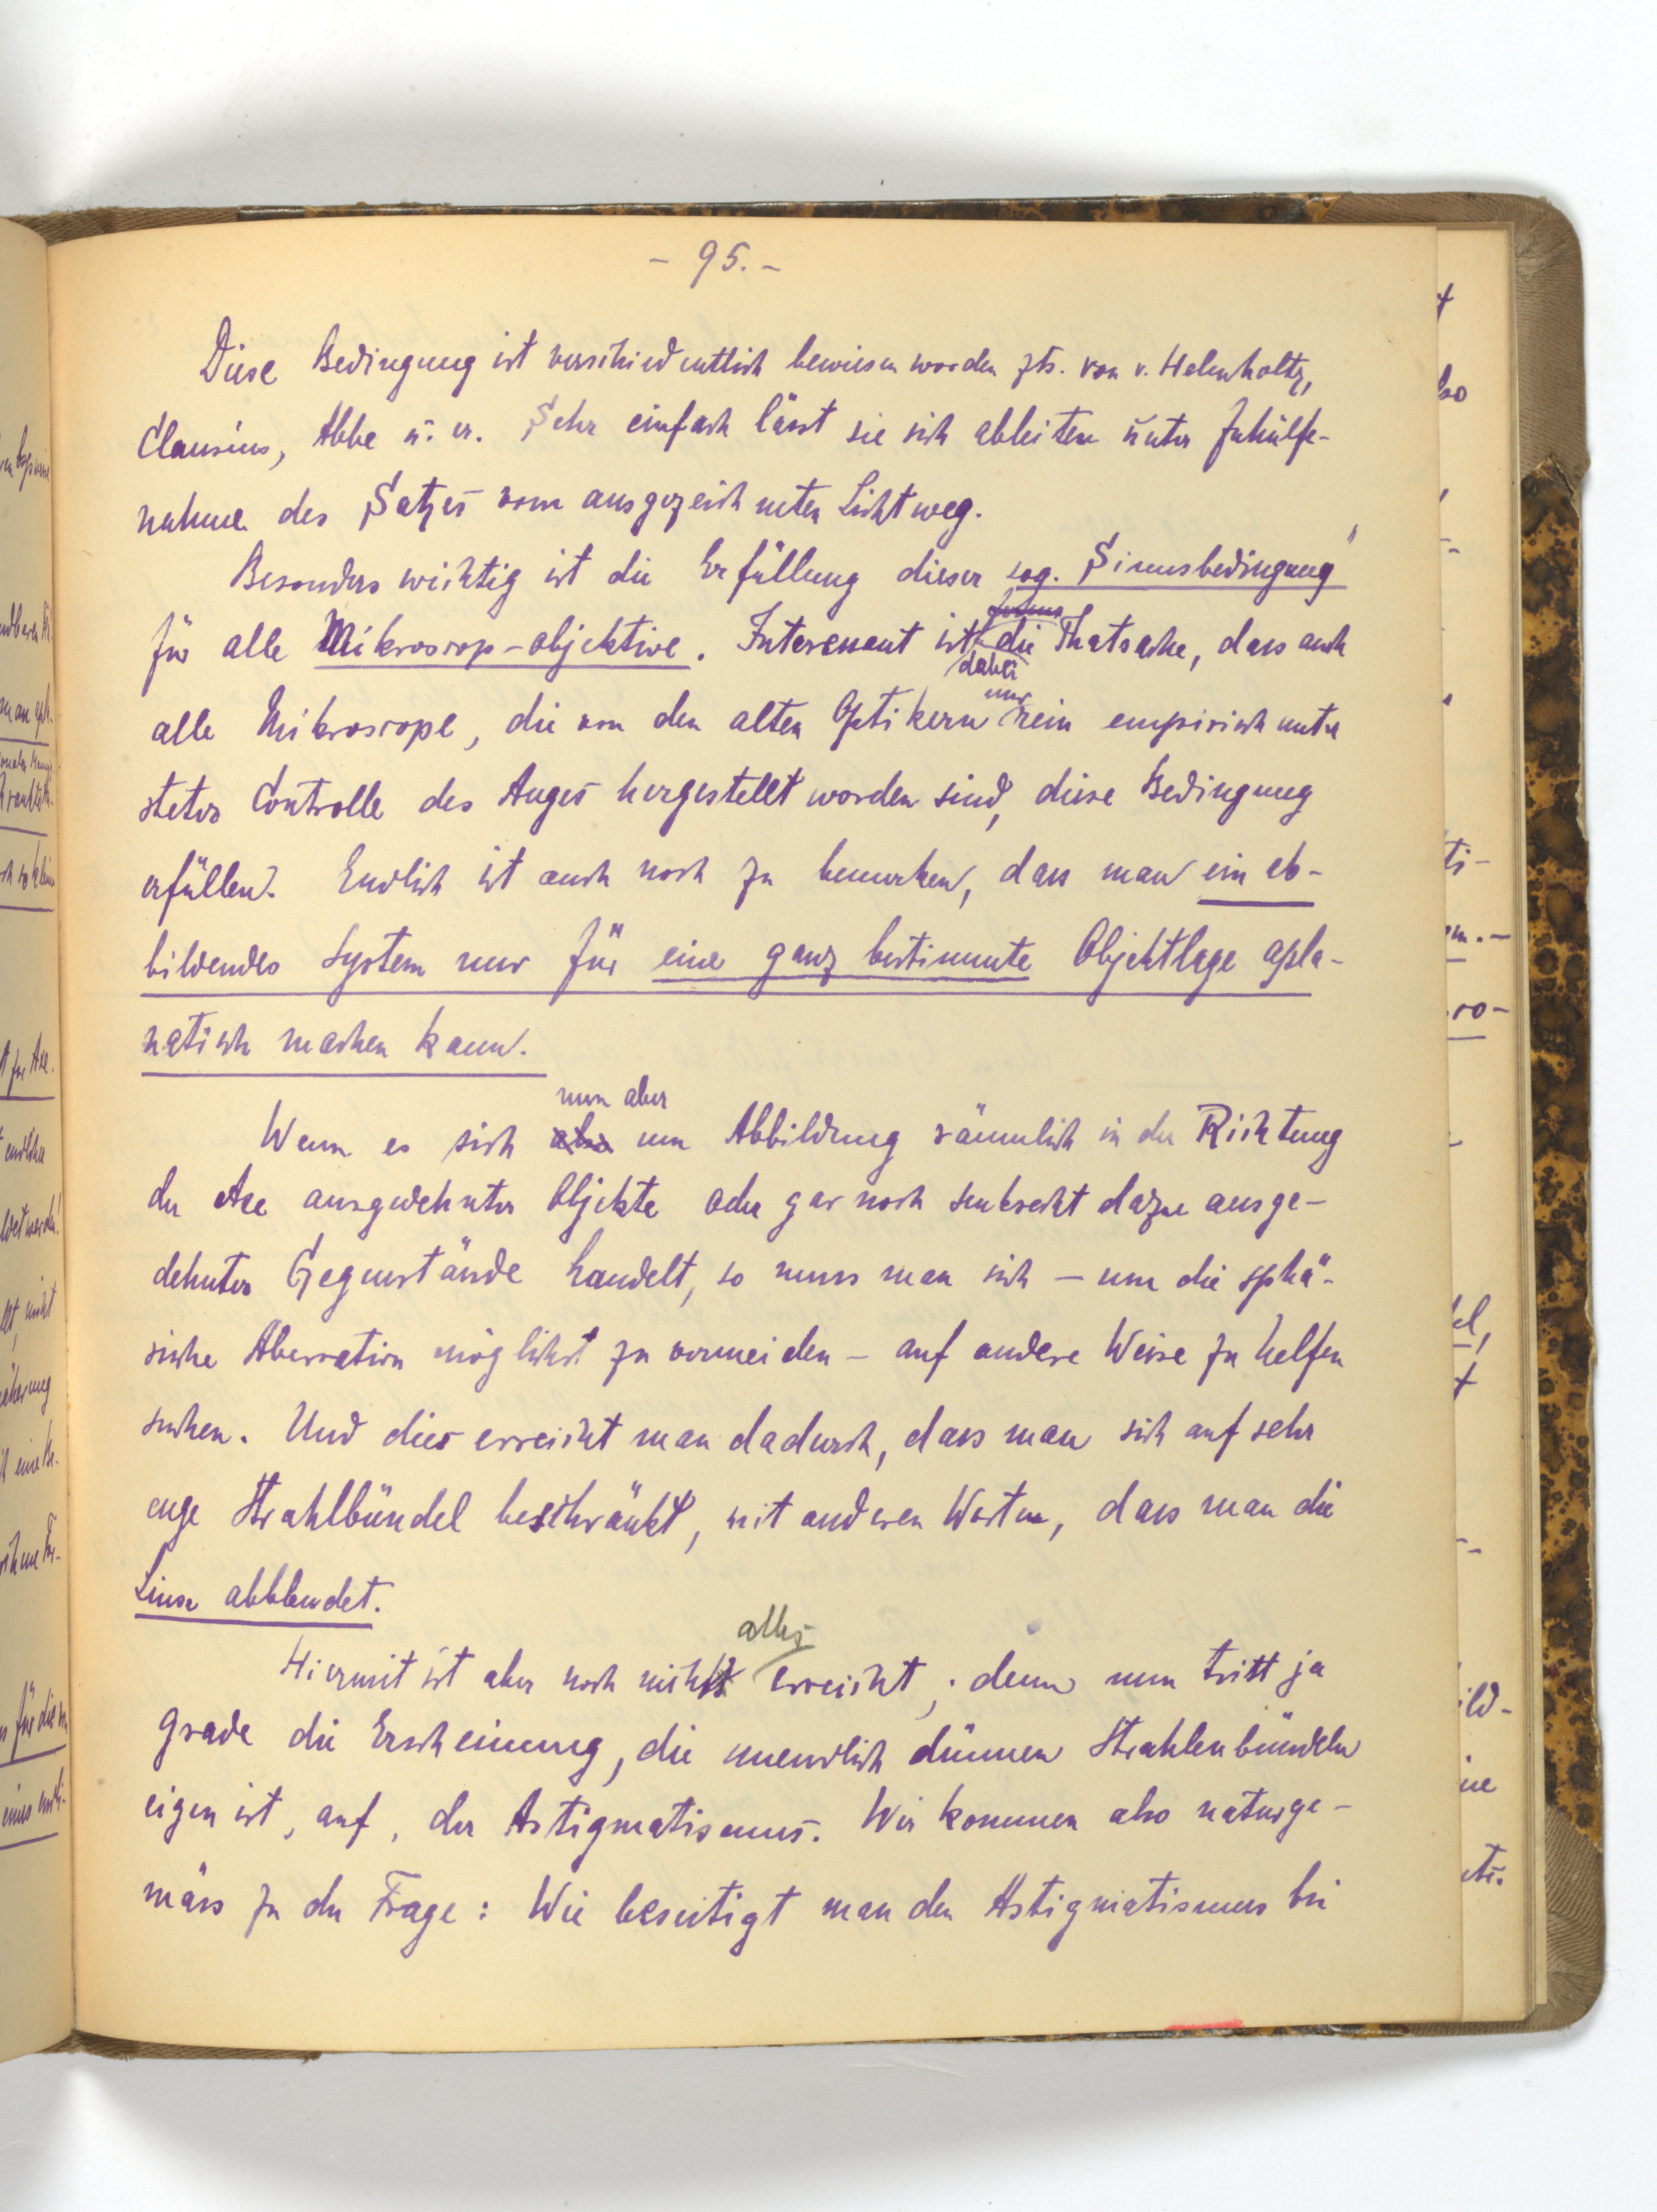 - 95. -
Diese Bedingung ist verschiedentlich bewiesen worden zts. von v. Helmholtz,
Clausius, Abbe u. a. Sehr einfach lässt sie sich ableiten unter Zuhülfe-
nahme des Satzes vom ausgezeichneten Lichtweg.
Besonders wichtig ist die Erfüllung dieser sog. Sinusbedingung"
für alle Mikroscop-objektive. Interessant ist dabei die Thatsache, dass auch
alle Mikroscope, die von den alten Optikern nur rein empirisch unter
steter Controlle des Auges hergestellt worden sind, diese Bedingung
erfüllen. Endlich ist auch noch zu bemerken, dass man ein ab-
bildendes System nur für eine ganz bestimmte Objektlage apla-
natisch machen kann.
Wenn es sich nun aber um Abbildung räumlich in der Richtung
der Axe ausgedehnter Objekte oder gar noch senkrecht dazu ausge-
dehnter Gegenstände handelt, so muss man sich - um die sphä-
rische Aberration möglichst zu vermeiden - auf andere Weise zu helfen
suchen. Und dies erreicht man dadurch, dass man sich auf sehr
enge Strahlbündel beschränkt, mit anderen Worten, dass man die
Linse abblendet.
Hiermit ist aber noch nicht alles erreicht; denn nun tritt ja
grade die Erscheinung, die unendlich dünnen Strahlenbündeln
eigen ist, auf, der Astigmatismus. Wir kommen also naturge-
mäss zu der Frage: Wie beseitigt man den Astigmatismus bei